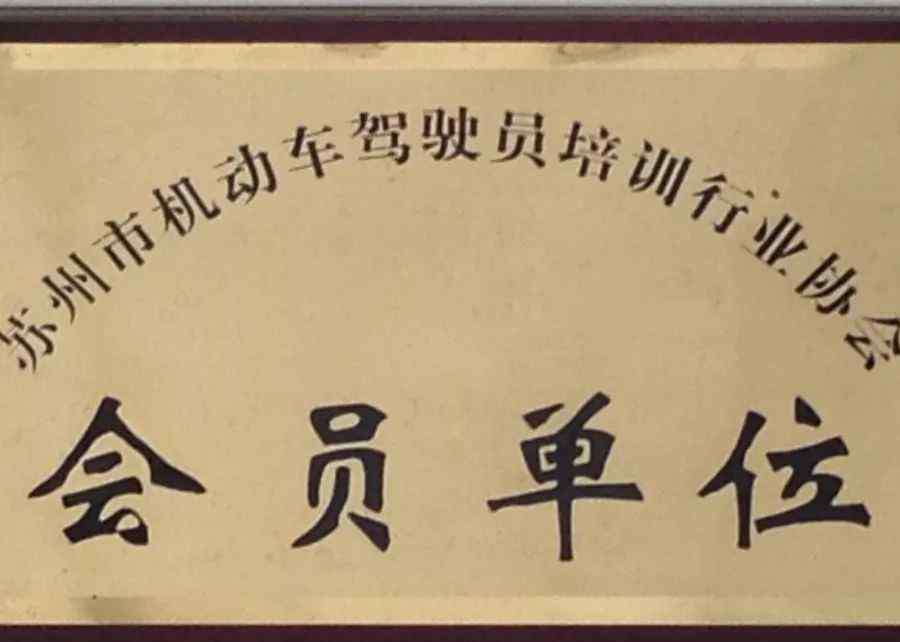 苏州市机动车驾驶员培训行业协会
会员单位